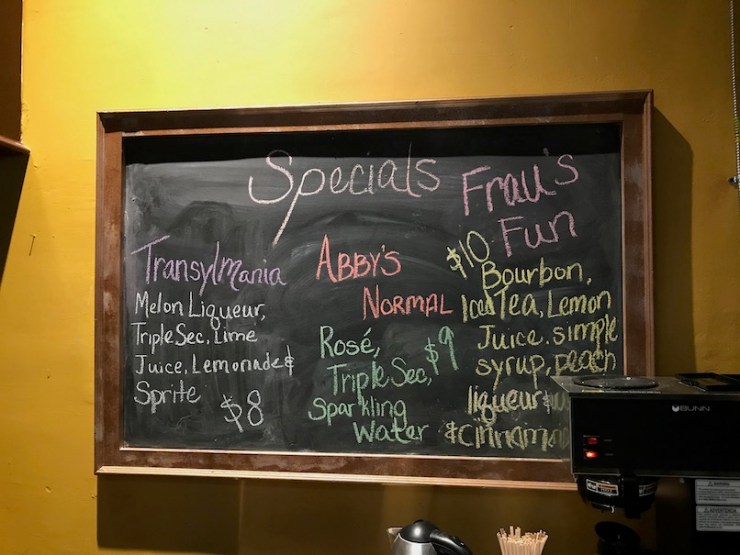 Specials
TransylMania
Melon Liqueur,
Triple Sec, Lime
Juice, Lemonade &
Sprite $8
ABBY'S
NORMAL
Rosé,
Triple Sec, $9
Sparkling
Water
Frau's
Fun
$10
Bourbon,
Iced Tea, Lemon
Juice. simple
syrup, peach
liqueur
& cinnamon
BUNN